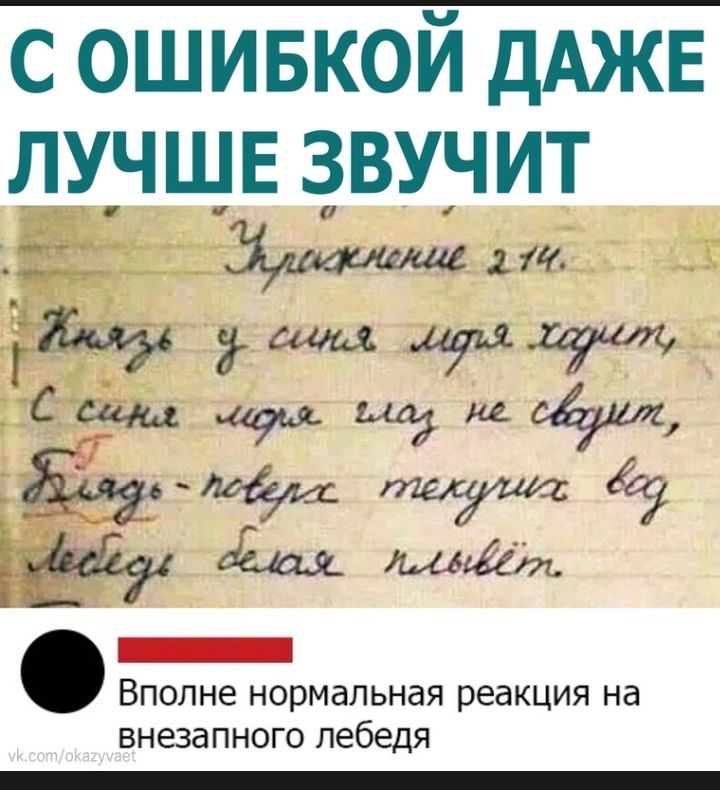 С ОШИБКОЙ ДАЖЕ
ЛУЧШЕ ЗВУЧИТ
Упражнение 214.
Князь у синя моря ходит,
С синя моря глаз не сводит,
Г
Блядь - поверх текучих вод
Лебедь белая плывёт.
Вполне нормальная реакция на
внезапного лебедя
vk.com/okazyvaet